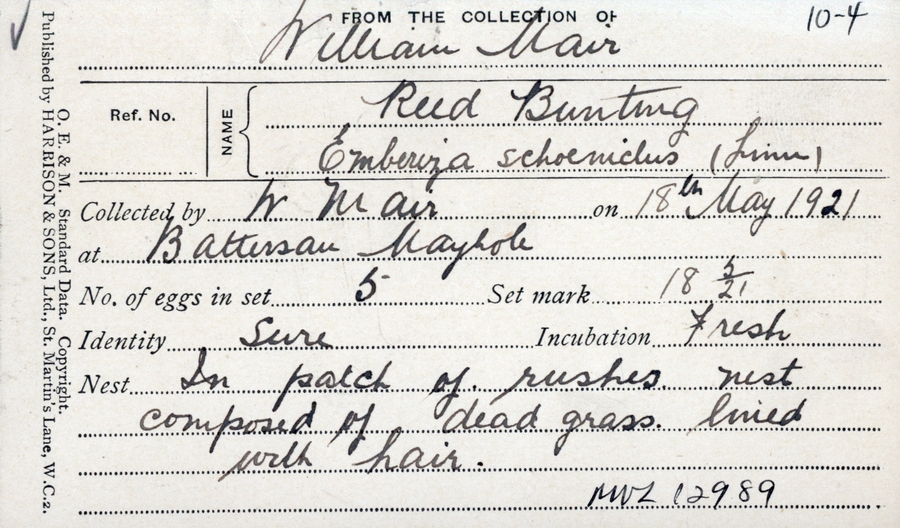 FROM THE COLLECTION OF
10-4
William Mair
Ref. No.
NAME
Reed Bunting
Emberiza schoeniclus (Linn)
Collected by W Mair on 18th May 1921
at Battersan Mayhole
No. of eggs in set 5 Set mark 18 5/21
Identity Sure Incubation Fresh
Nest In patch of rushes nest
composed of dead grass. lined
with hair.
MVZ 12989
O. E. & M. Standard Data. Copyright.
Published by HARRISON & SONS, Ltd., St. Martin's Lane, W.C.2.